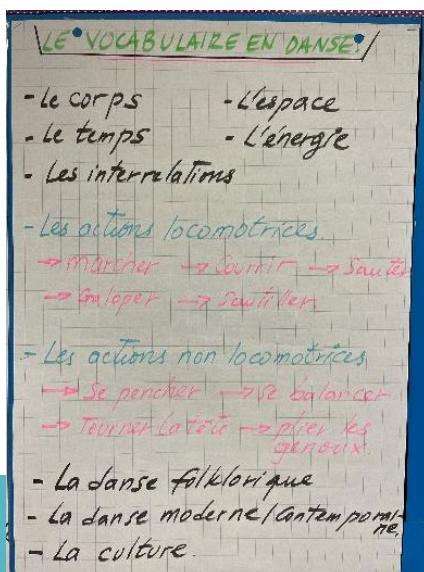 LE VOCABULAIRE EN DANSE
- Le corps - L'espace
- Le temps - L'énergie
- Les interrelations
- Les actions locomotrices
→ Marcher → Courrir → Sauter
→ Galoper → Sautiller
- Les actions non locomotrices
→ Se pencher → Se balancer
→ Tourner la tête → plier les
genoux.
- La danse folklorique
- La danse moderne/contemporai-
ne.
- La culture.